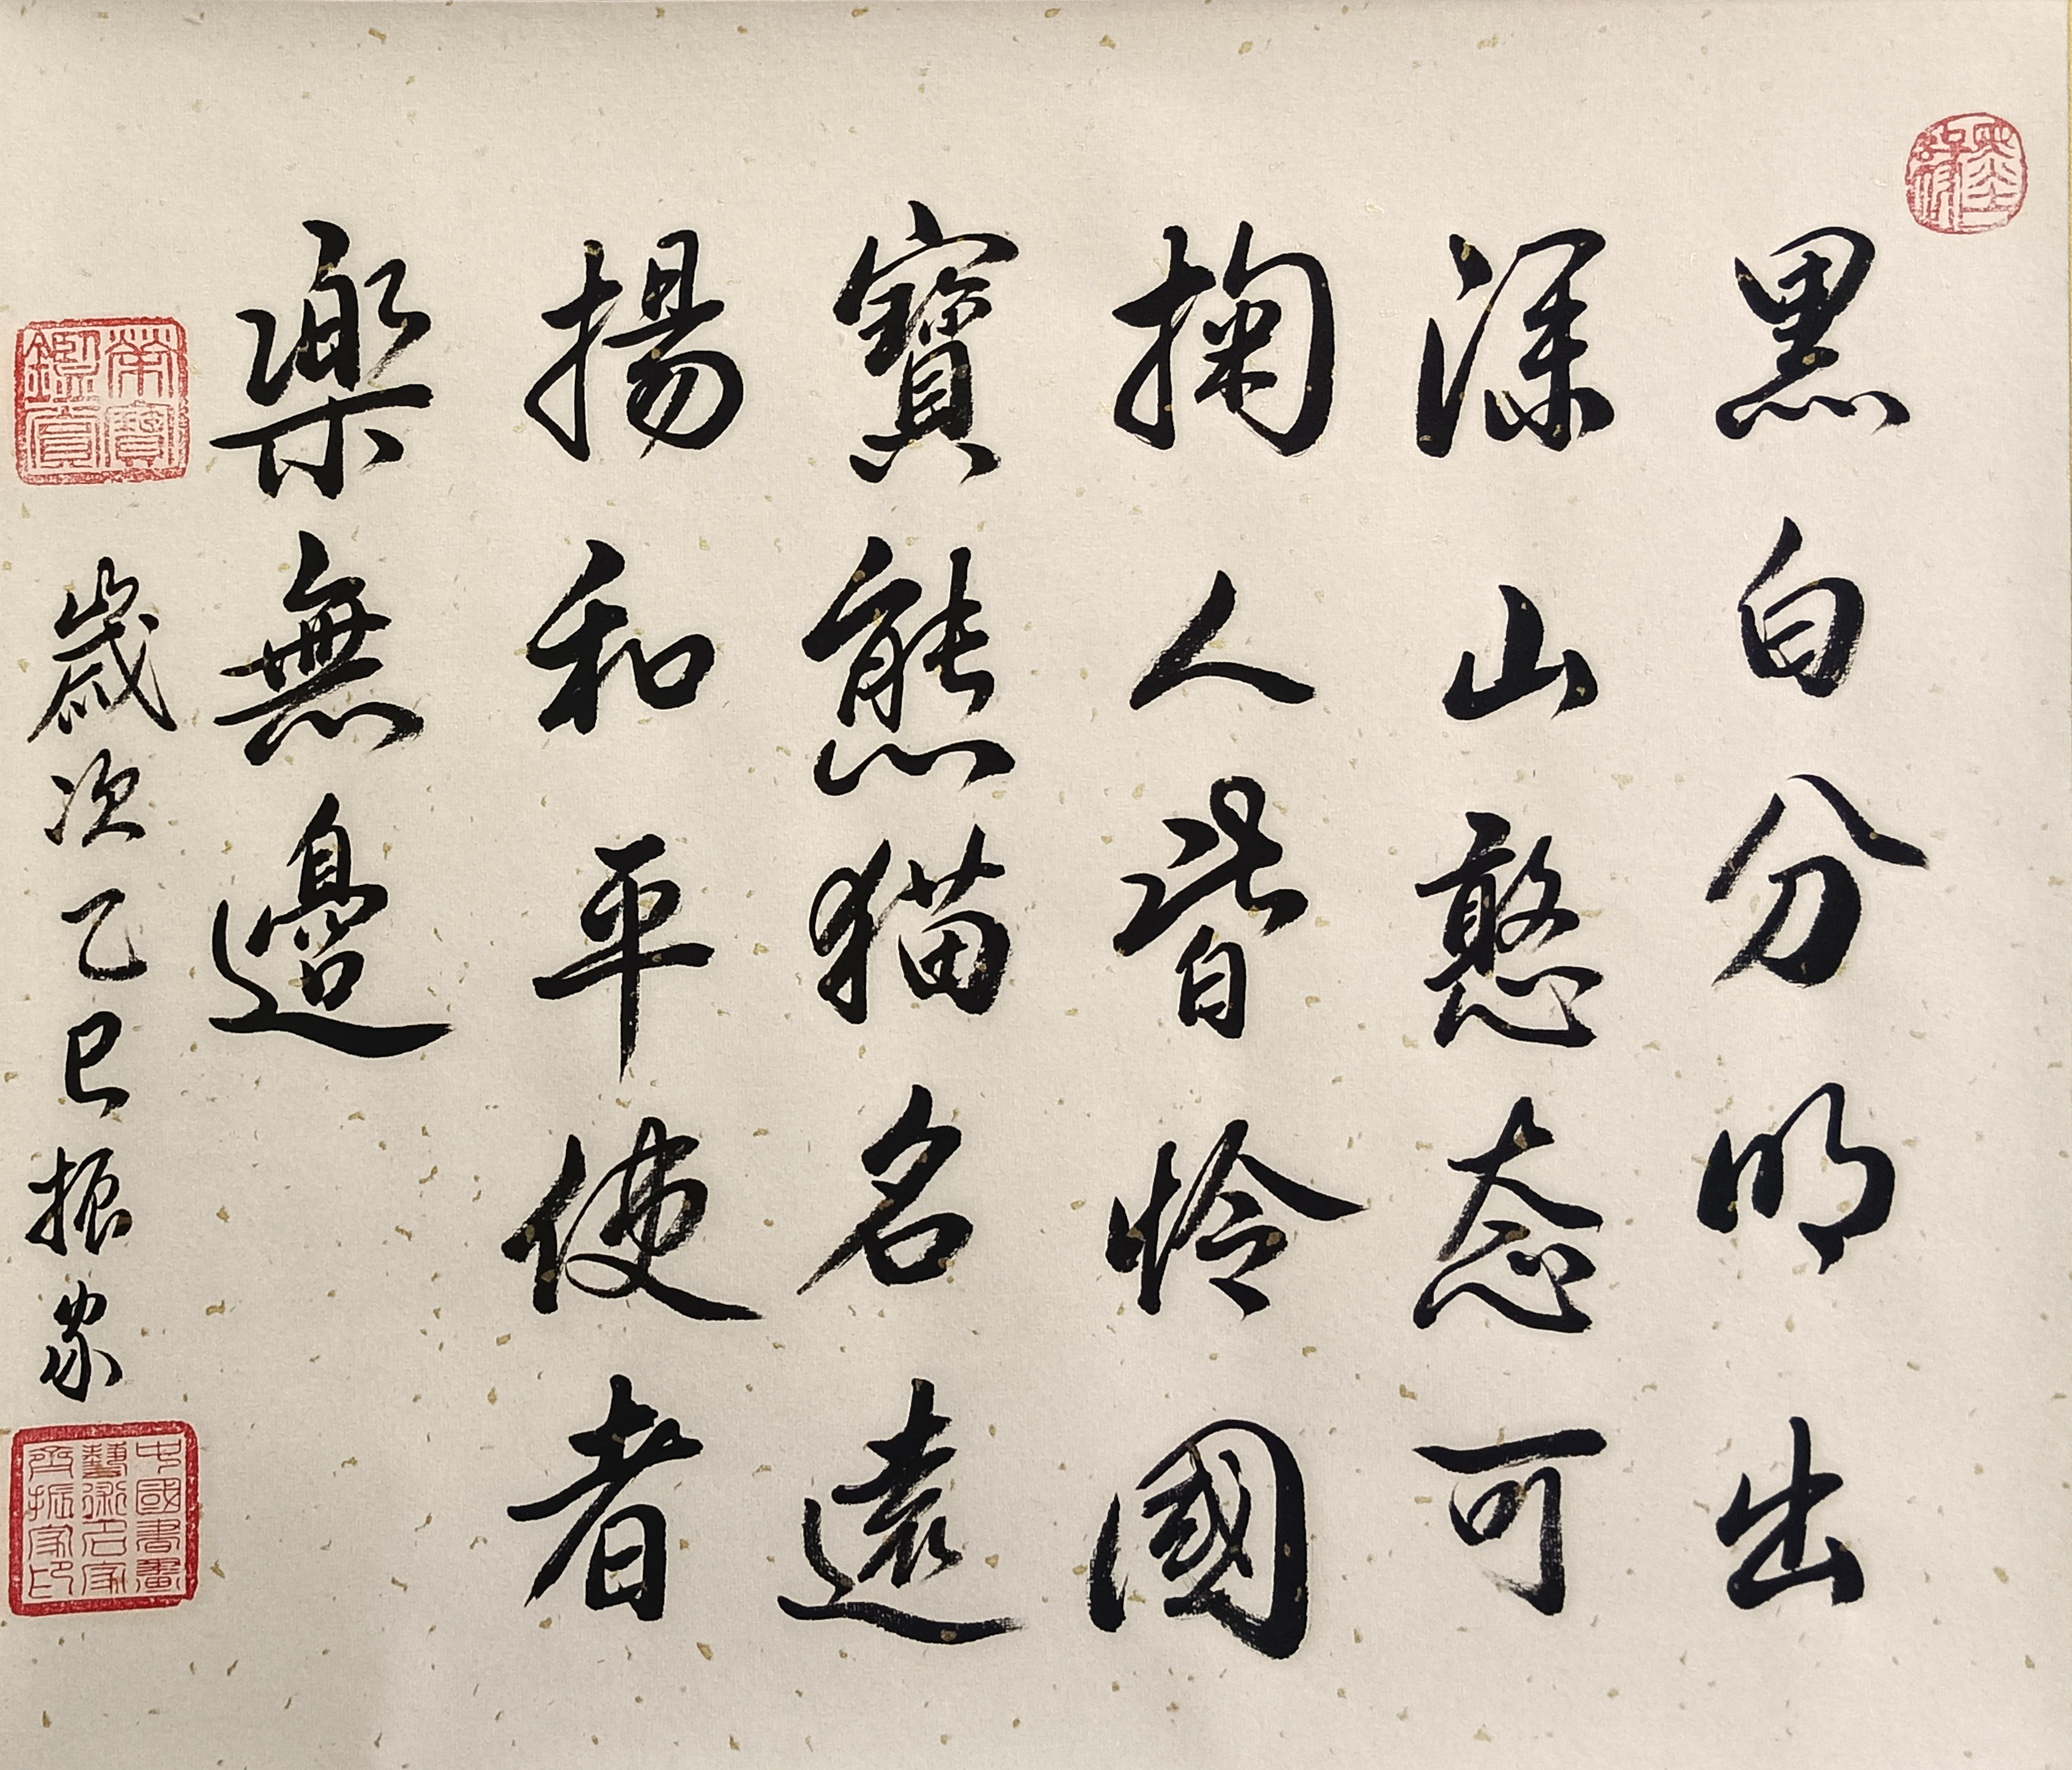 黑白分明出
深山憨态可
掬人皆怜國
寶熊猫名遠
揚和平使者
樂無邊
歲次乙巳振家
榮寶鑑賞
中國書畫
藝術名家
齐振家印